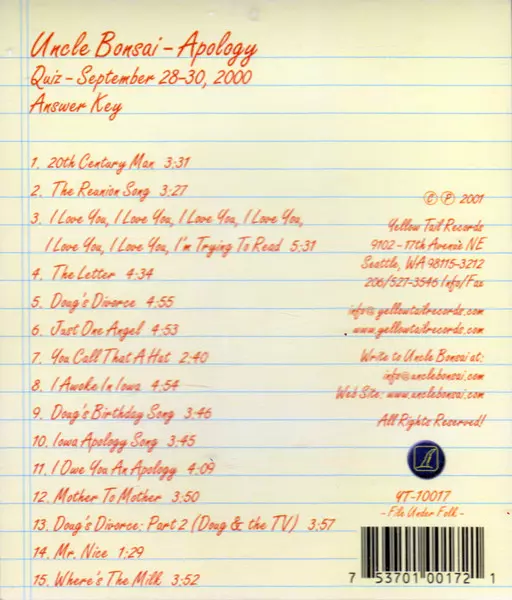 Uncle Bonsai - Apology
Quiz - September 28-30, 2000
Answer Key
1. 20th Century Man 3:31
2. The Reunion Song 3:27
3. I Love You, I Love You, I Love You, I Love You,
I Love You, I Love You, I'm Trying To Read 5:31
4. The Letter 4:34
5. Doug's Divorce 4:55
6. Just One Angel 4:53
7. You Call That A Hat 2:40
8. I Awoke In Iowa 4:54
9. Doug's Birthday Song 3:46
10. Iowa Apology Song 3:45
11. I Owe You An Apology 4:09
12. Mother To Mother 3:50
13. Doug's Divorce: Part 2 (Doug & the TV) 3:57
14. Mr. Nice 1:29
15. Where's The Milk 3:52
© ℗ 2001
Yellow Tail Records
9102 - 17th Avenue NE
Seattle, WA 98115-3212
206/527-3546 Info/Fax
info@yellowtailrecords.com
www.yellowtailrecords.com
Write to Uncle Bonsai at:
info@unclebonsai.com
Web Site: www.unclebonsai.com
All Rights Reserved!
YT-10017
- File Under Folk -
7 53701 00172 1